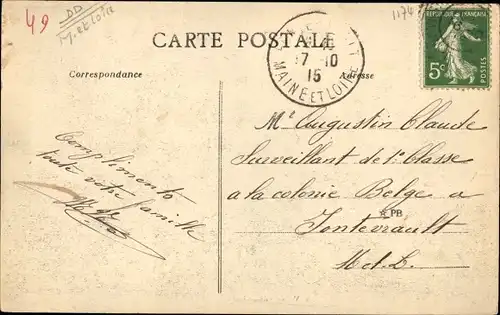 49
DD
M. et Loire
1174
CARTE POSTALE
Correspondance
Adresse
17-10
15
MAINE ET LOIRE
REPUBLIQUE FRANÇAISE
5c
POSTES
Mr Augustin Claude
Surveillant de 1e Classe
a la colonie Belge a
Fontevrault
M et L.
PB
Compliments
toute votre famille